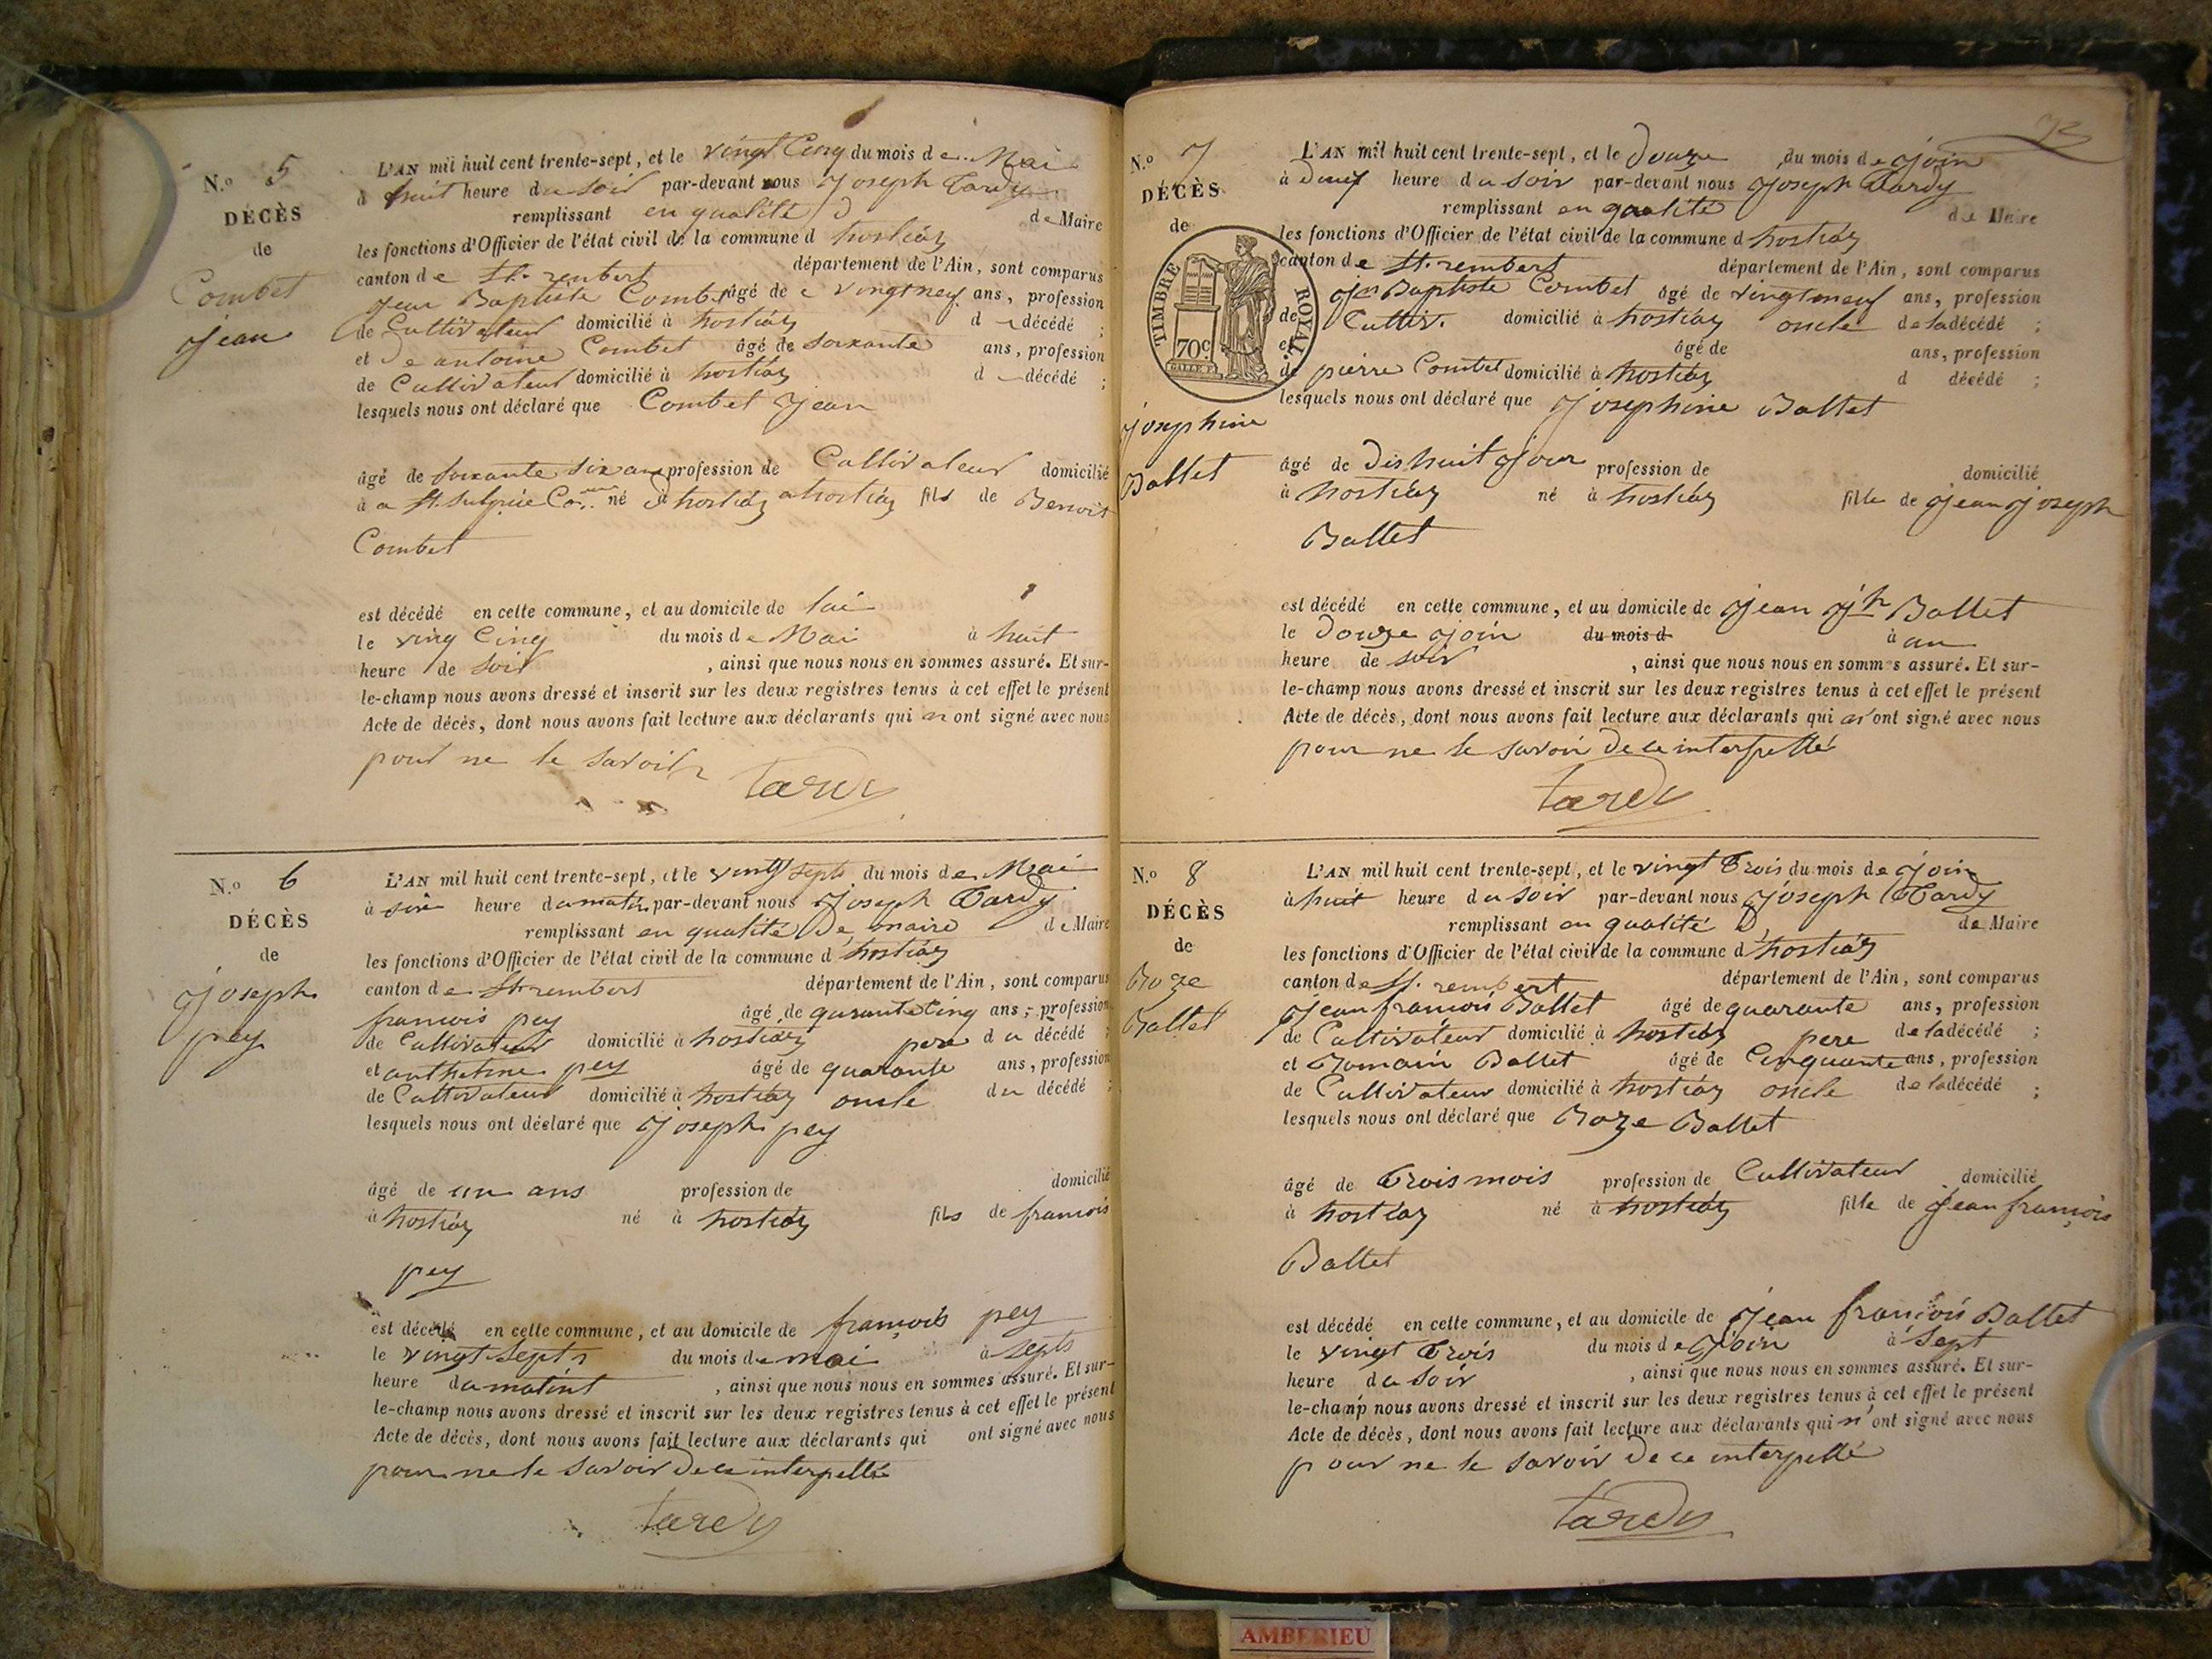 N.o 5
DÉCÈS
de
Combet
Jean
L'AN mil huit cent trente-sept, et le vingt Cinq du mois de Mai
à huit heure du soir par-devant nous Joseph Tardy
remplissant en qualité d de Maire
les fonctions d'Officier de l'état civil de la commune d hostiaz
canton de St. rembert département de l'Ain, sont comparus
Jean Baptiste Combet âgé de vingtneuf ans, profession
de Cultivateur domicilié à hostiaz d décédé ;
et de antoine Combet âgé de soixante ans, profession
de Cultivateur domicilié à hostiaz d décédé ;
lesquels nous ont déclaré que Combet Jean
âgé de soixante six ans profession de Cultivateur domicilié
à a St. Sulpice né à hostiaz a hostiaz fils de Benoit
Combet
est décédé en cette commune, et au domicile de lui
le ving Cinq du mois de Mai à huit
heure de soir, ainsi que nous nous en sommes assuré. Et sur-
le-champ nous avons dressé et inscrit sur les deux registres tenus à cet effet le présent
Acte de décès, dont nous avons fait lecture aux déclarants qui n ont signé avec nous
pour ne le savoir
tardy
N.o 6
DÉCÈS
de
Joseph
pey
L'AN mil huit cent trente-sept, et le vingt septs du mois de Mai
à six heure du matin par-devant nous Joseph Tardy
remplissant en qualité de maire de Maire
les fonctions d'Officier de l'état civil de la commune d hostiaz
canton de St. rembert département de l'Ain, sont comparus
francois pey âgé de quarante Cinq ans, profession
de Cultivateur domicilié à hostiaz pere du décédé ;
et anthelme pey âgé de quarante ans, profession
de Cultivateur domicilié à hostiaz oncle du décédé ;
lesquels nous ont déclaré que Joseph pey
âgé de un ans profession de domicilié
à hostiaz né à hostiaz fils de francois
pey
est décédé en cette commune, et au domicile de françois pey
le vingt septs du mois de mai à septs
heure du matint, ainsi que nous nous en sommes assuré. Et sur-
le-champ nous avons dressé et inscrit sur les deux registres tenus à cet effet le présent
Acte de décès, dont nous avons fait lecture aux déclarants qui ont signé avec nous
pour ne le savoir de ce interpellé
tardy
N.o 7
DÉCÈS
de
TIMBRE ROYAL
70c
Josephine
Ballet
L'AN mil huit cent trente-sept, et le douze du mois de join
à heure du soir par-devant nous Joseph Tardy
remplissant en qualité de Maire
les fonctions d'Officier de l'état civil de la commune d hostiaz
canton de St. rembert département de l'Ain, sont comparus
Jn Baptiste Combet âgé de vingtneuf ans, profession
de Cultiv. domicilié à hostiaz oncle de la décédé ;
et âgé de ans, profession
de pierre Combet domicilié à hostiaz d décédé ;
lesquels nous ont déclaré que Josephine Ballet
âgé de dishuit jour profession de domicilié
à hostiaz né à hostiaz fille de Jean Joseph
Ballet
est décédé en cette commune, et au domicile de Jean Jh Ballet
le douze join du mois d à un
heure de soir, ainsi que nous nous en sommes assuré. Et sur-
le-champ nous avons dressé et inscrit sur les deux registres tenus à cet effet le présent
Acte de décès, dont nous avons fait lecture aux déclarants qui n'ont signé avec nous
pour ne le savoir de ce interpellé
tardy
N.o 8
DÉCÈS
de
Roze
Ballet
L'AN mil huit cent trente-sept, et le vingt trois du mois de join
à huit heure du soir par-devant nous Joseph Tardy
remplissant en qualité d de Maire
les fonctions d'Officier de l'état civil de la commune d'hostiaz
canton de St. rembert département de l'Ain, sont comparus
Jean françois Ballet âgé de quarante ans, profession
de Cultivateur domicilié à hostiaz pere de la décédé ;
et Romain Ballet âgé de Cinquante ans, profession
de Cultivateur domicilié à hostiaz oncle de la décédé ;
lesquels nous ont déclaré que Roze Ballet
âgé de trois mois profession de Cultivateur domicilié
à hostiaz né à hostiaz fille de Jean françois
Ballet
est décédé en cette commune, et au domicile de Jean françois Ballet
le vingt trois du mois de Join à sept
heure du soir, ainsi que nous nous en sommes assuré. Et sur-
le-champ nous avons dressé et inscrit sur les deux registres tenus à cet effet le présent
Acte de décès, dont nous avons fait lecture aux déclarants qui n'ont signé avec nous
pour ne le savoir de ce interpellé
tardy
AMBERIEU